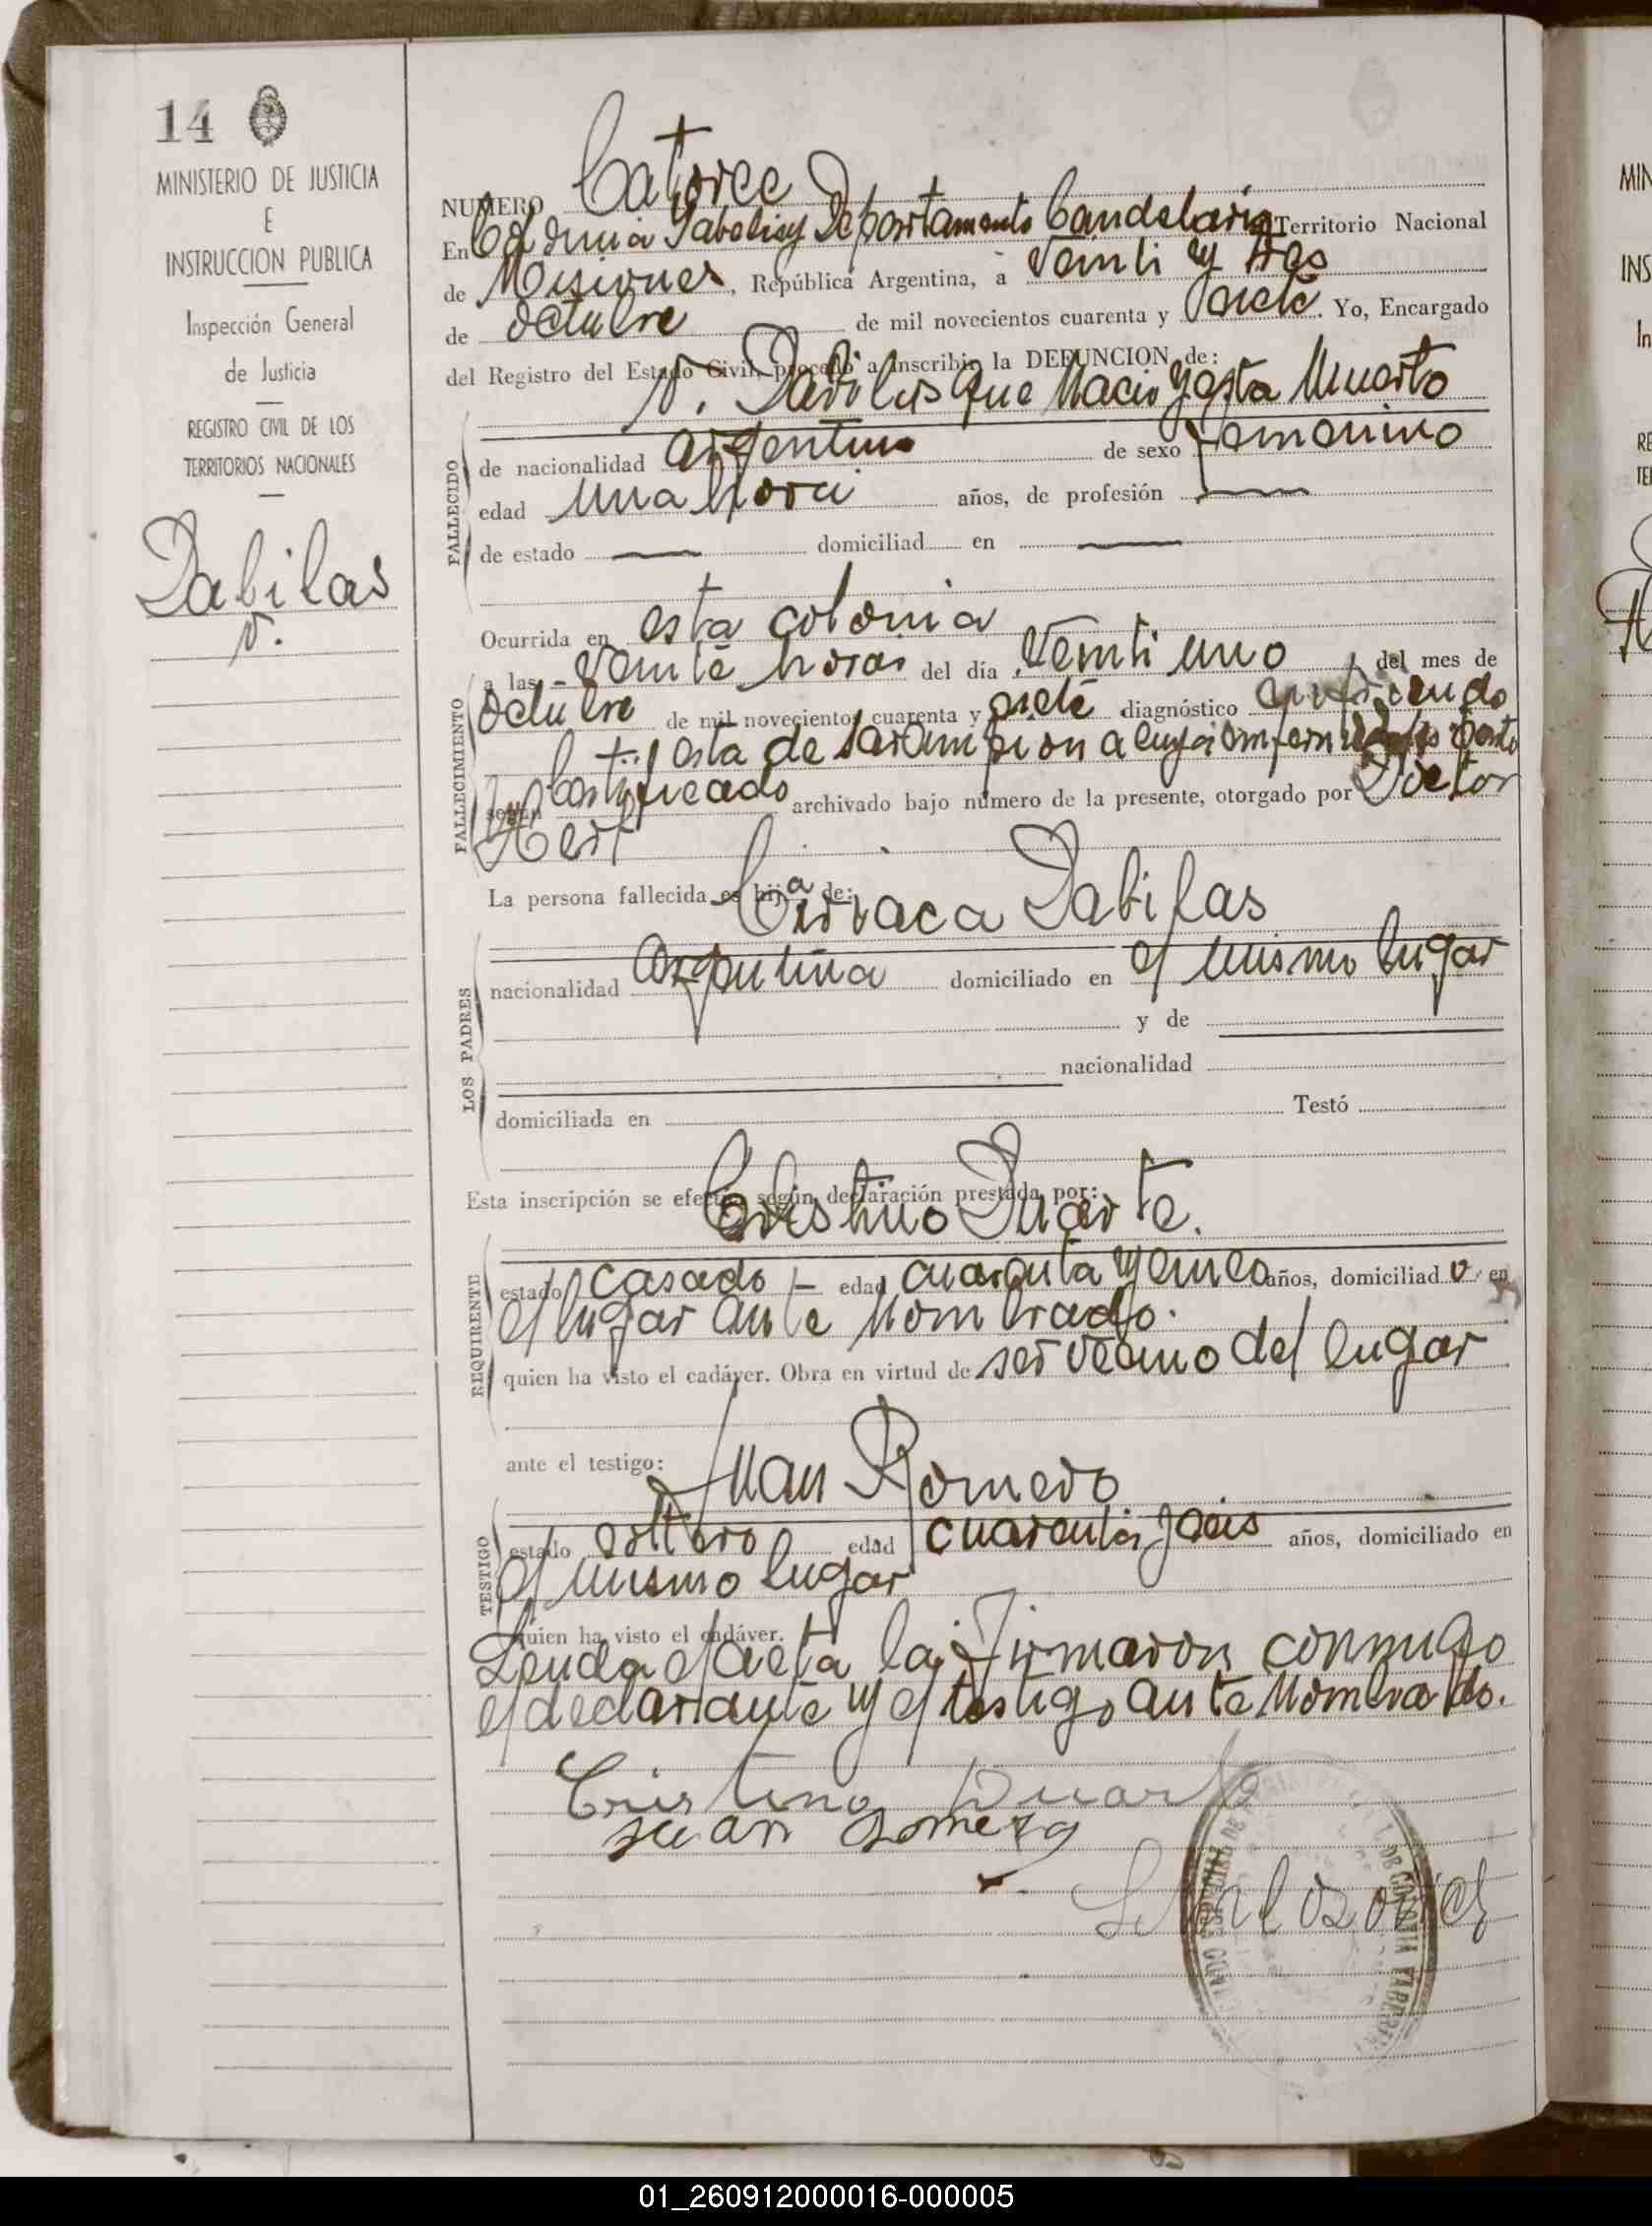 14
MINISTERIO DE JUSTICIA
E
INSTRUCCION PUBLICA
Inspección General
de Justicia
REGISTRO CIVIL DE LOS
TERRITORIOS NACIONALES
Dabilas
N.
NUMERO Catorce
En Colonia Departamento Candelaria Territorio Nacional
de Misiones, República Argentina, a Veinti y tres
de octubre de mil novecientos cuarenta y siete. Yo, Encargado
del Registro del Estado Civil, procedo a inscribir la DEFUNCION de:
N. que Nacio Muerto
FALLECIDO
de nacionalidad argentino de sexo femenino
edad una hora años, de profesión
de estado domiciliad en
FALLECIMIENTO
Ocurrida en esta colonia
a las veinte horas del día veinti uno del mes de
octubre de mil novecientos cuarenta y siete diagnóstico
esta de sarampion a
según Certificado archivado bajo número de la presente, otorgado por Doctor
La persona fallecida es hija de:
Ciriaca Dabilas
LOS PADRES
nacionalidad Argentina domiciliado en el mismo lugar
y de
nacionalidad
domiciliada en Testó
Esta inscripción se efectúa según declaración prestada por:
Duarte.
REQUIRENTE
estado casado - edad cuarenta y cinco años, domiciliado en
el lugar ante Nombrado.
quien ha visto el cadáver. Obra en virtud de ser vecino del lugar
ante el testigo:
Juan Romero
TESTIGO
estado edad cuarenta años, domiciliado en
el mismo lugar
quien ha visto el cadáver.
Leida el acta la Firmaron conmigo
el declarante y el testigo ante Nombrado.
Cristino Duarte
Juan Romero
01_260912000016-000005